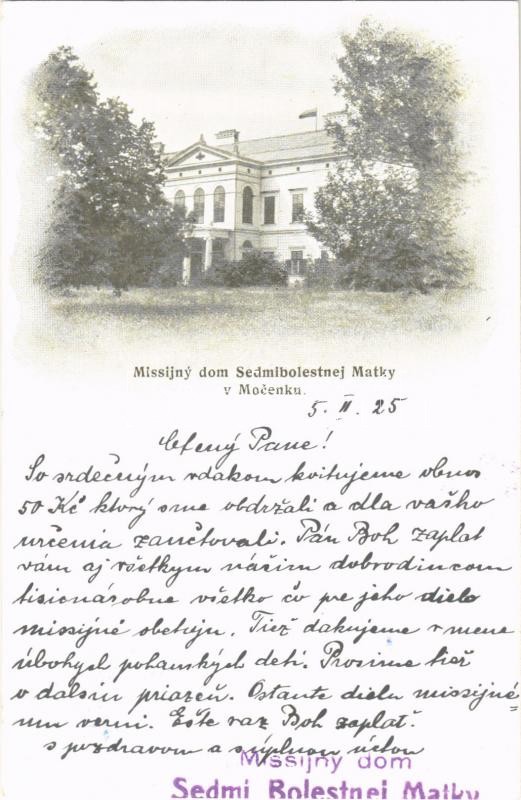 Missijný dom Sedmibolestnej Matky
v Močenku.
5. II. 25
Ctený Pane!
So srdečným vďakom kvitujeme obnos
50 Kč ktorý sme obdržali a dla vašho
určenia zaučtovali. Pán Boh zaplat
vám aj všetkym nášim dobrodincom
tisicnárobne všetko čo pre jeho dielo
missijné obetuju. Tiež dakujeme v mene
úbohych pohanských detí. Prosime tiež
o dalsiu priazeň. Ostante dielu missijné=
mu verni. Ešte raz Boh zaplať.
s pozdravom a s úplnou úctou
Missijný dom
Sedmi Bolestnej Matky